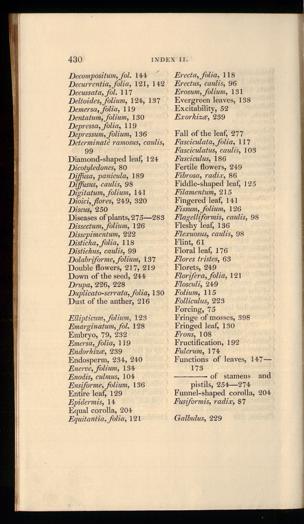 430
INDEX II.
Decompositum, fol. 144
Decurrentia, folia, 121, 142
Decussata, fol. 117
Deltoides, folium, 124, 137
Demersa, folia, 119
Dentatum, folium, 130
Depressa, folia, 119
Depressum, folium, 136
Determinatè ramosus, caulis,
99
Diamond-shaped leaf, 124
Dicotyledones, 80
Diffusa, panicula, 189
Diffusus, caulis, 98
Digitatum, folium, 141
Dioici, flores, 249, 320
Discus, 250
Diseases of plants, 275—283
Dissectum, folium, 126
Dissepimentum, 222
Disticha, folia, 118
Distichus, caulis, 99
Dolabriforme, folium, 137
Double flowers, 217, 219
Down of the seed, 244
Drupa, 226, 228
Duplicato-serrata, folia, 130
Dust of the anther, 216
Ellipticum, folium, 123
Emarginatum, fol. 128
Embryo, 79, 232
Emersa, folia, 119
Endorhizæ, 239
Endosperm, 234, 240
Enerve, folium, 134
Enodis, culmus, 104
Ensiforme, folium, 136
Entire leaf, 129
Epidermis, 14
Equal corolla, 204
Equitantia, folia, 121
Erecta, folia, 118
Erectus, caulis, 96
Erosum, folium, 131
Evergreen leaves, 138
Excitability, 52
Exorhizæ, 239
Fall of the leaf, 277
Fasciculata, folia, 117
Fasciculatus, caulis, 103
Fasciculus, 186
Fertile flowers, 249
Fibrosa, radix, 86
Fiddle-shaped leaf, 125
Filamentum, 215
Fingered leaf, 141
Fissum, folium, 126
Flagelliformis, caulis, 98
Fleshy leaf, 136
Flexuosus, caulis, 98
Flint, 61
Floral leaf, 176
Flores tristes, 63
Florets, 249
Florifera, folia, 121
Flosculi, 249
Folium, 115
Folliculus, 223
Forcing, 75
Fringe of mosses, 398
Fringed leaf, 130
Frons, 108
Fructification, 192
Fulcrum, 174
Functions of leaves, 147—
173
——— of stamens and
pistils, 254—274
Funnel-shaped corolla, 204
Fusiformis, radix, 87
Galbulus, 229